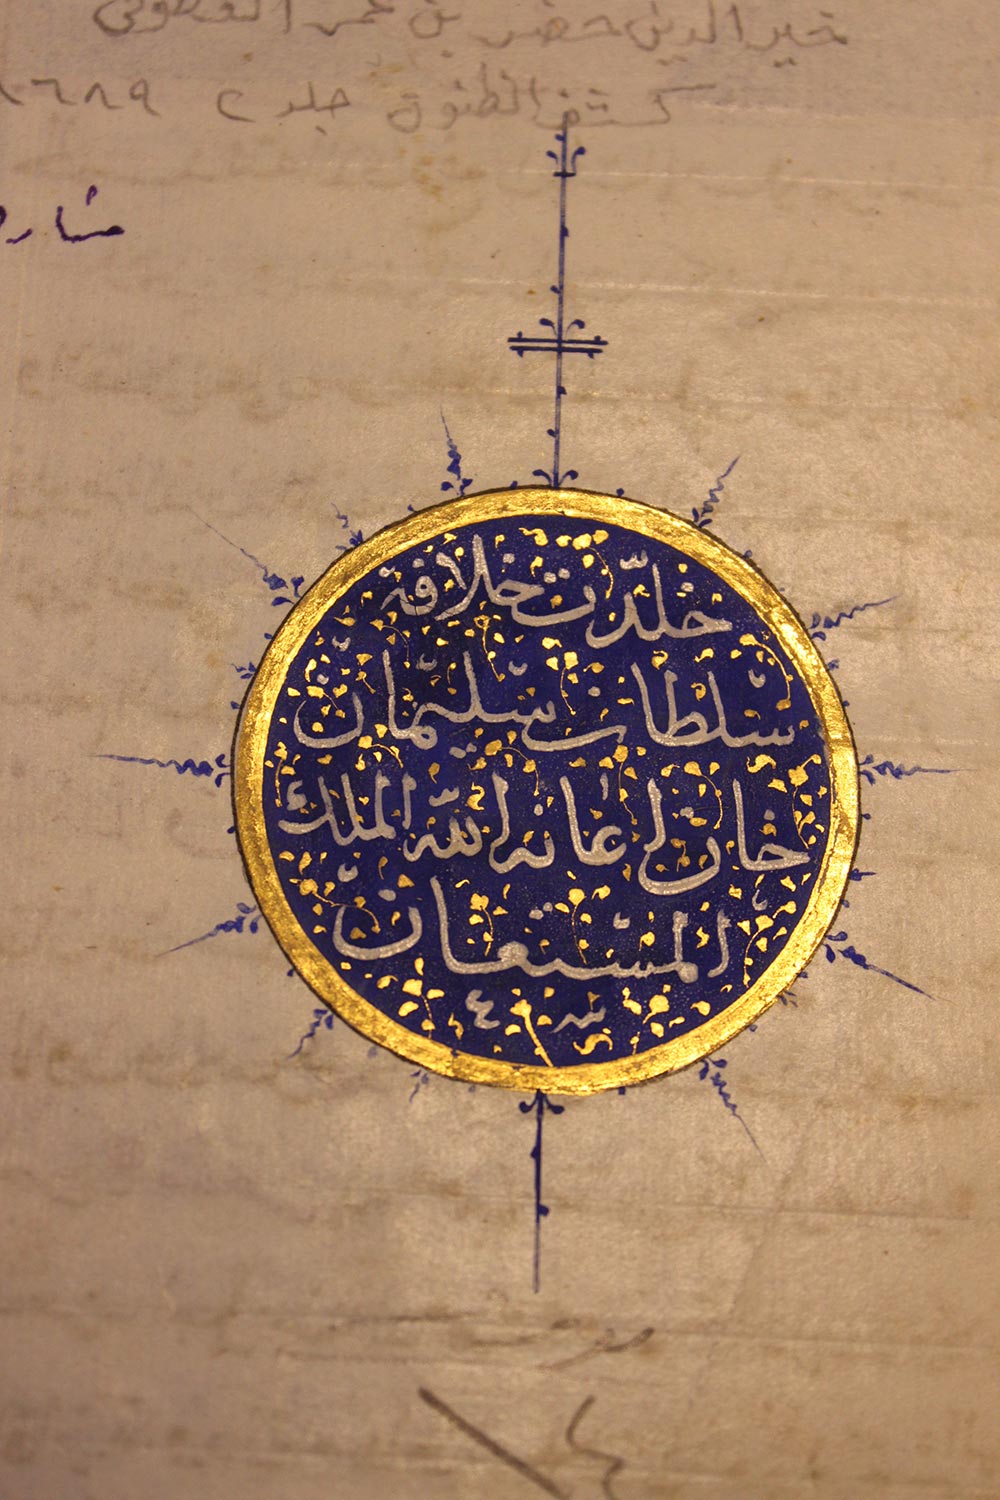 خير الدين خضر بن عمر العطوفى
كشف الظنون جلد ٢ ١٦٨٩
خلّدت خلافة
سلطان سليمان
خان اعانه اللّه الملك
المستعان